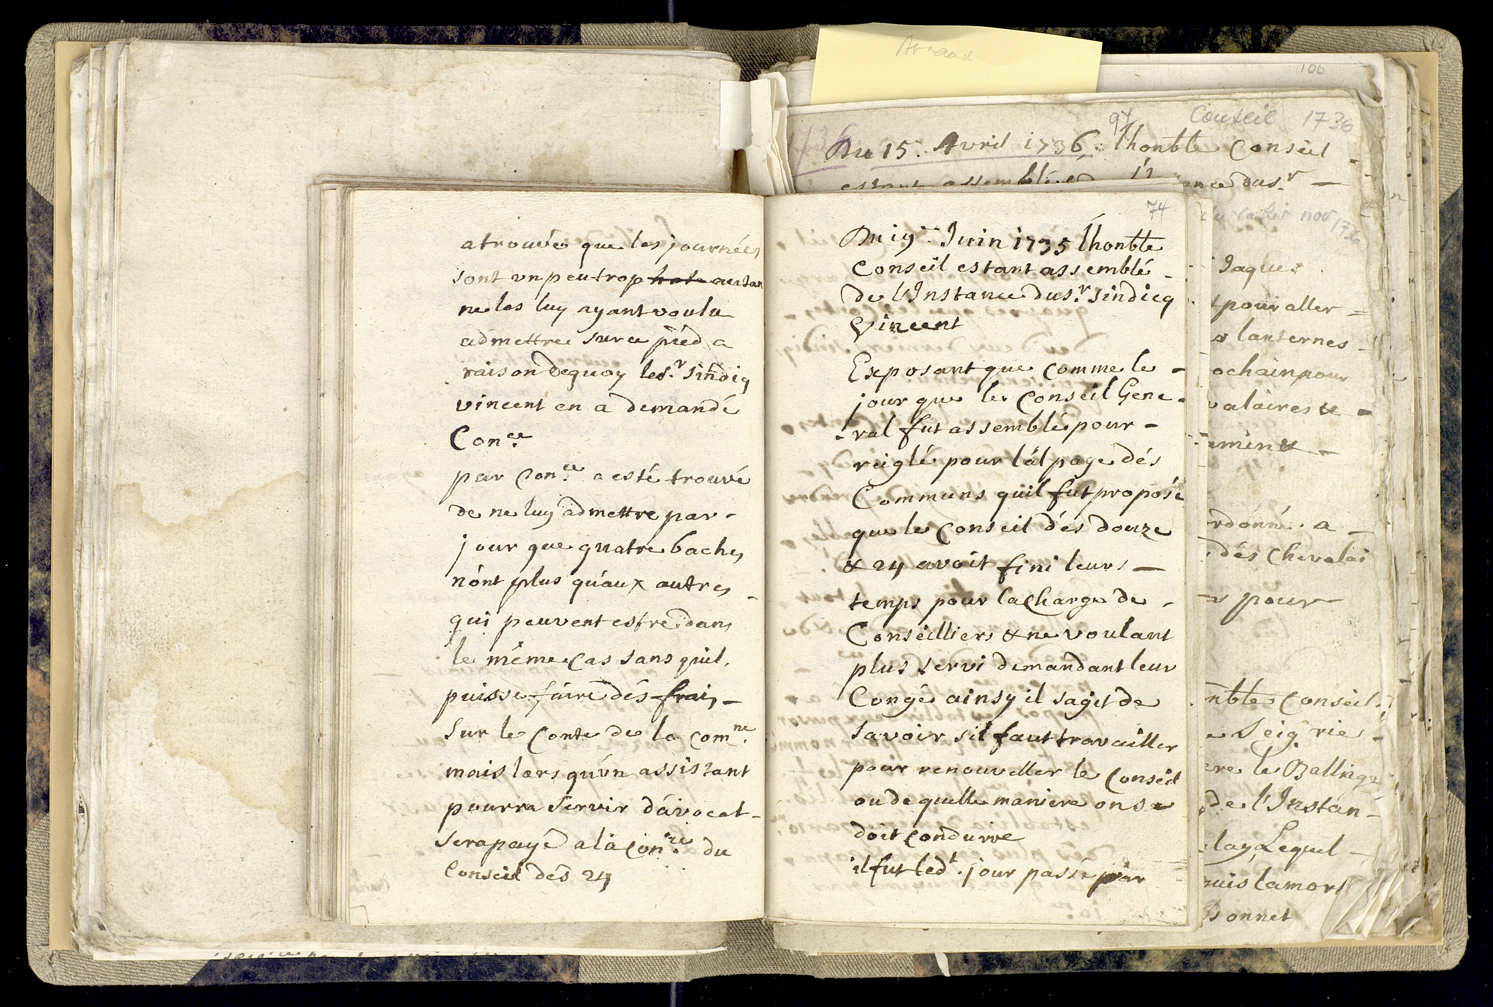 atrouvée que les journées
sont un peu trop
ne les luy ayant voulu
admettre sur ce pied a
raison dequoy led.r sindiq
vincent en a demandé
Con.ce
par Con.ce a esté trouvé
de ne luy admettre par-
jour que quatre baches
nónt plus quáux autres
qui peuvent estre dans
le méme cas sans quil
puisse faire dés frais
sur le Conte de la com.ne
mais lors quún assistant
pourra servir dávocat
sera payé a la con.ce du
Conseil dés 24
74
Du 19.e Juin 1735 lhonble
Conseil estant assemblé
de l'Instance dus.r sindicq
Vincent
Exposant que comme le
jour que le Conseil Gene-
-ral fut assemblé pour
reiglé pour lálpage dés
Communs quil fut proposé
que le Conseil dés douze
& 24 avoit fini leurs
temps pour la Charge de
Conseilliers & ne voulant
plus servi demandant leur
Congé ainsy il sagit de
savoir sil faut travailler
pour renouveller le Conseil
ou de quelle maniere on se
doit conduire
il fut led.t jour passé par
106
97 Conseil 1736
Du 15. Avril 1736. lhonble Conseil
estant assemblé
Jaques
pour aller
lanternes
ochain pour
valaires &
ordonné a
dés Chevalai
pour
honble Conseil
Seig.rie
le Ballinge
de l'Instan-
Lequel
puis la mort
Bonnet